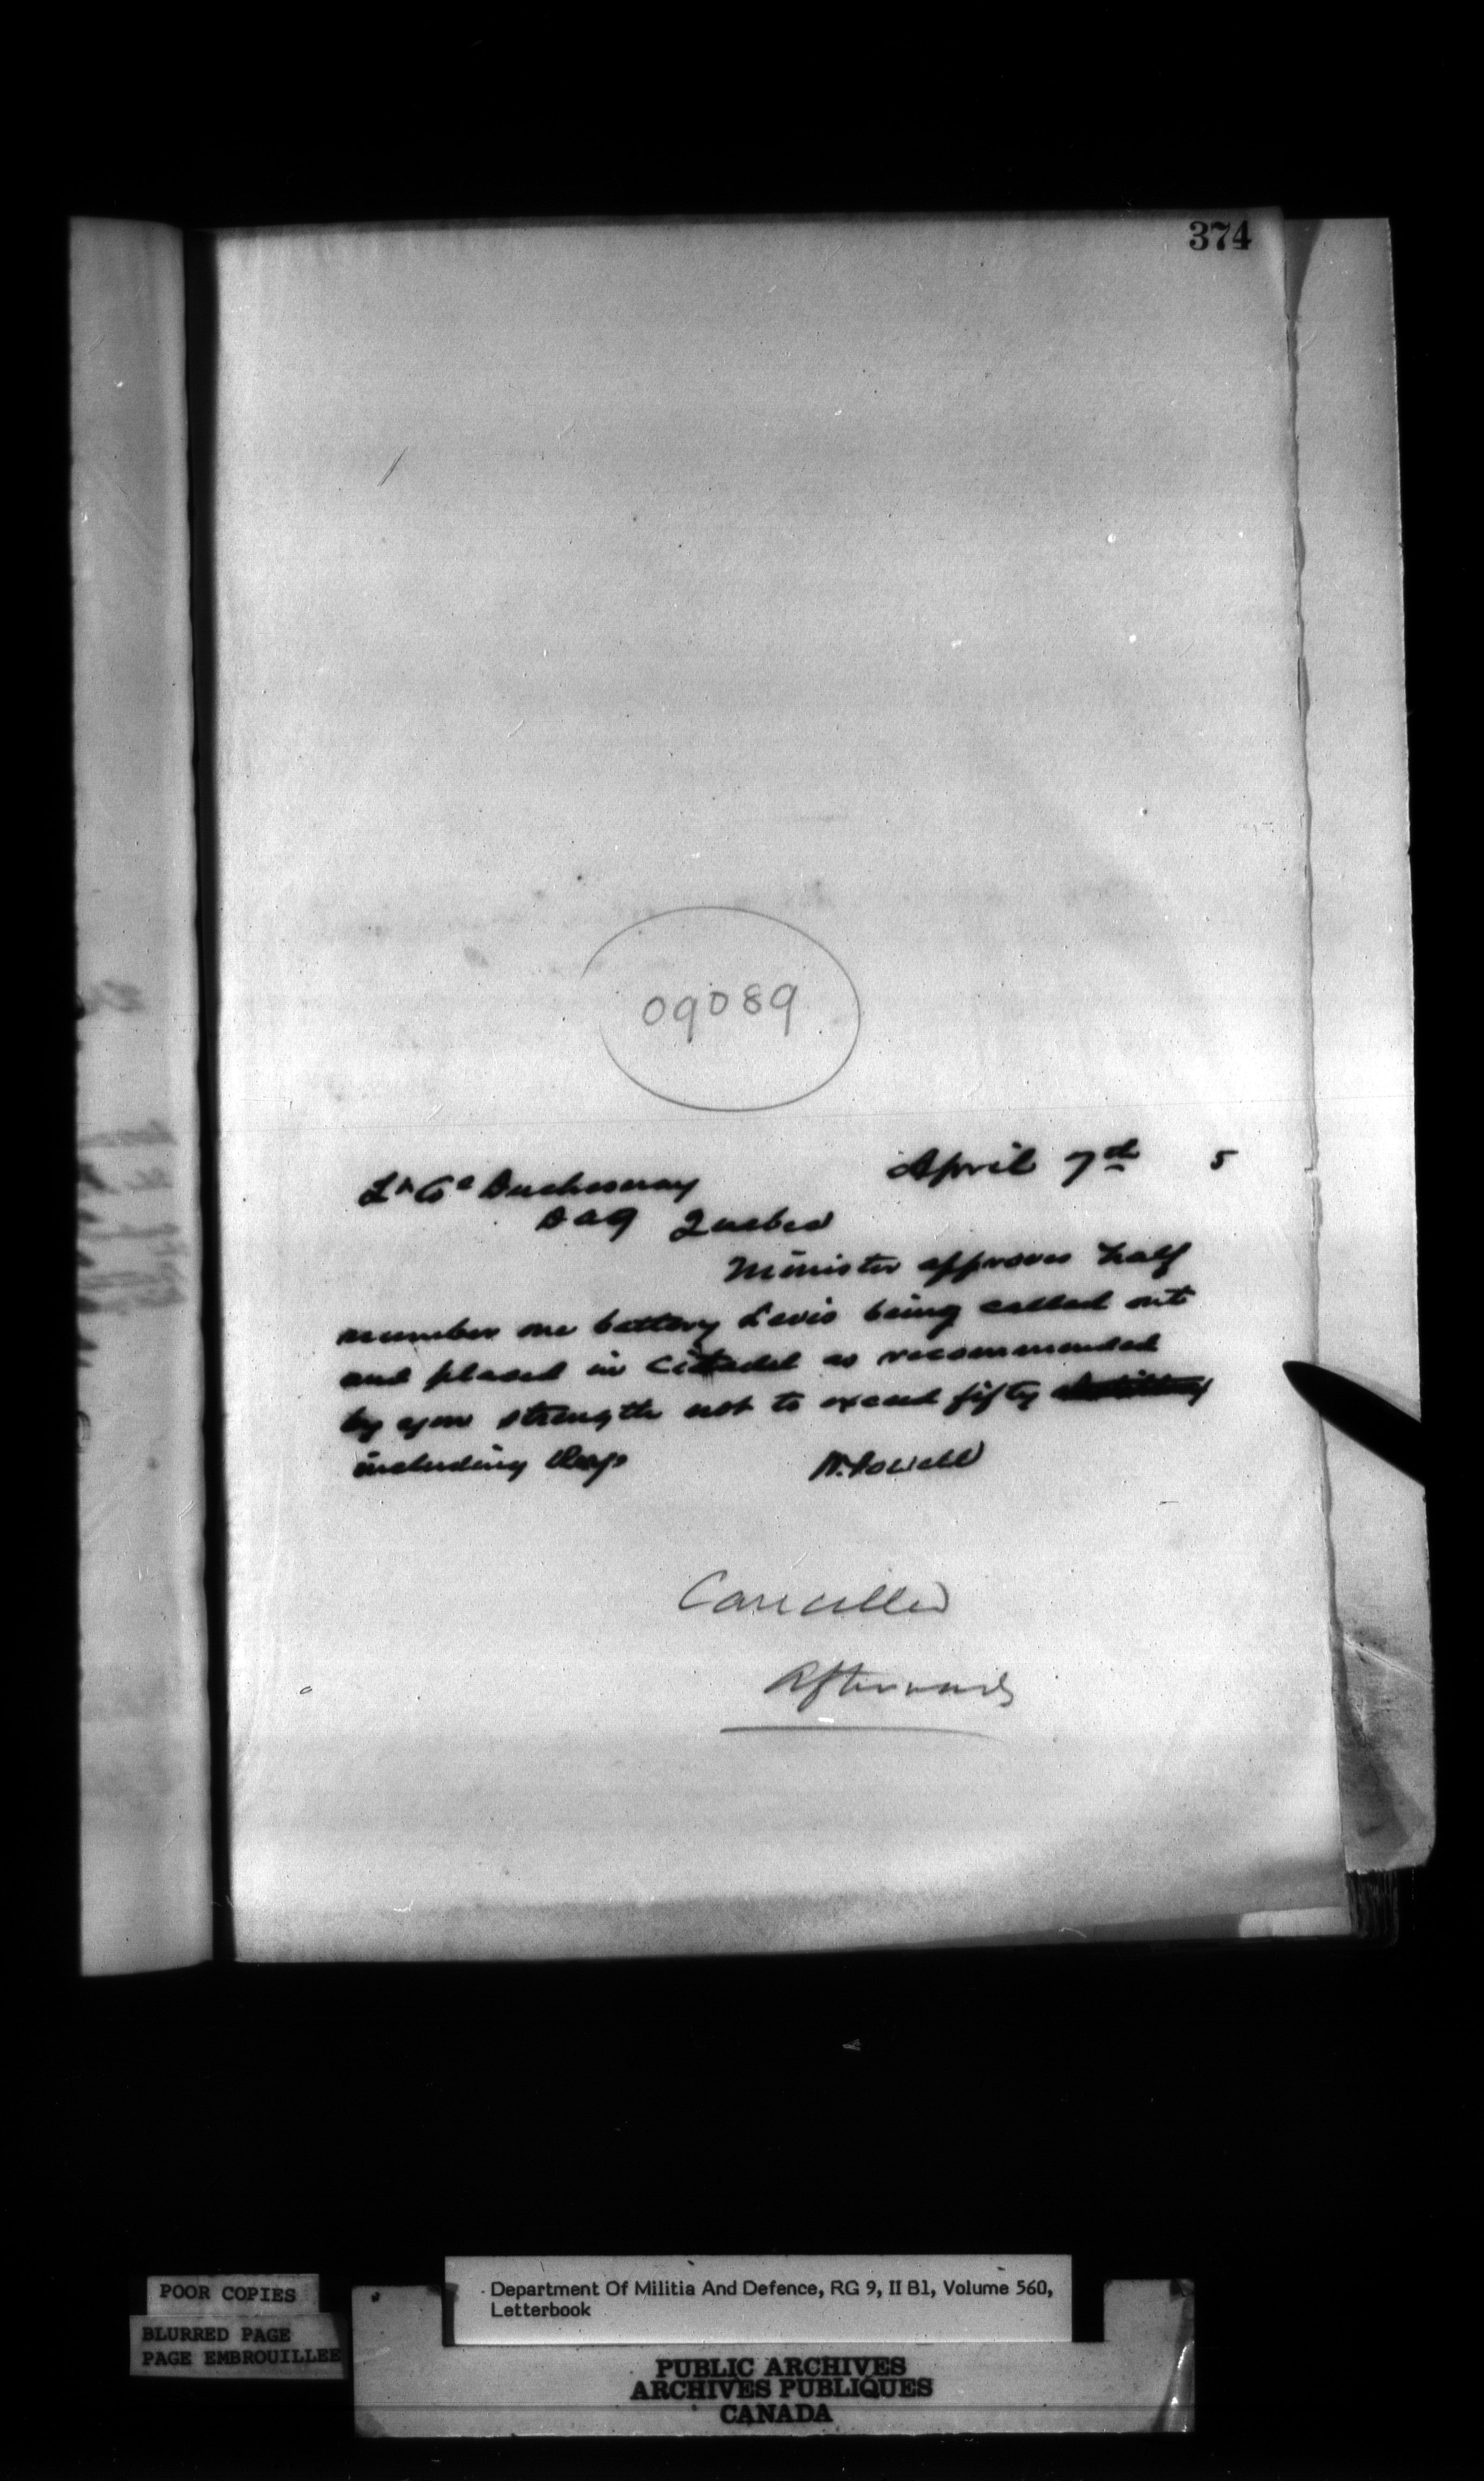 374
09089
April 7th 5
Lt Col Duchesnay
DAG Quebec
Minister approves half
number one battery Levis being called out
and placed in Citadel as recommended
by you strength not to exceed fifty
including
W. Powell
Cancelled
Afterwards
POOR COPIES
BLURRED PAGE
PAGE EMBROUILLEE
Department Of Militia And Defence, RG 9, II B1, Volume 560,
Letterbook
PUBLIC ARCHIVES
ARCHIVES PUBLIQUES
CANADA